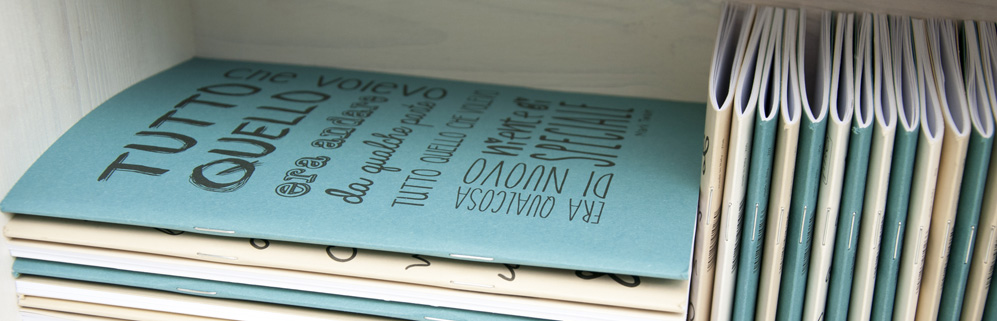 TUTTO
QUELLO
che volevo
era andare
da qualche parte
TUTTO QUELLO CHE VOLEVO
ERA QUALCOSA
DI NUOVO
niente di
SPECIALE